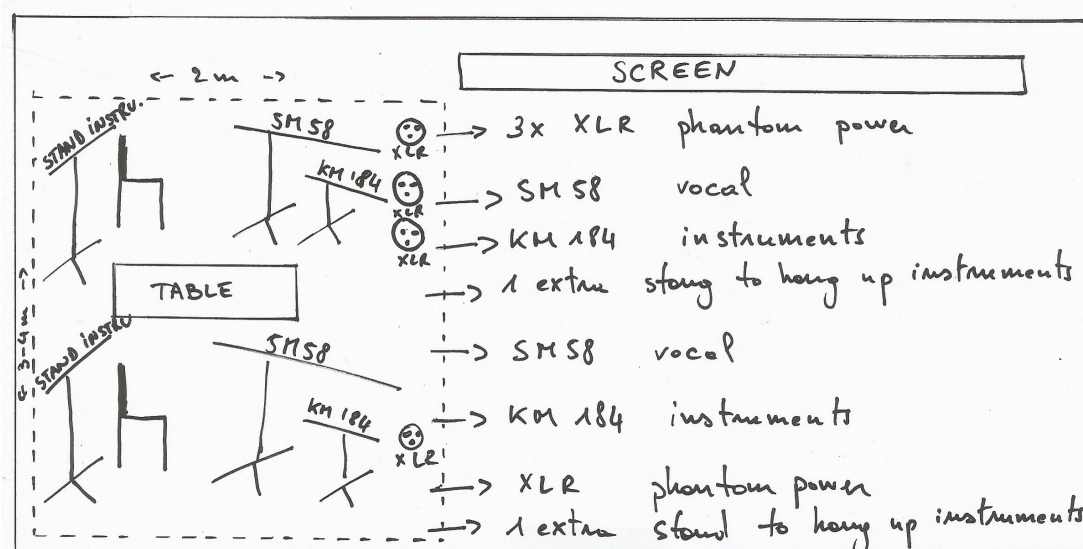 SCREEN
← 2m →
STAND INSTRU.
SM58
XLR
→ 3x XLR phantom power
KM 184
XLR
→ SM 58 vocal
XLR
→ KM 184 instruments
→ 1 extra stang to hang up instruments
TABLE
← 3-4m →
STAND INSTRU
SM58
→ SM 58 vocal
KM 184
XLR
→ KM 184 instruments
→ XLR phantom power
→ 1 extra stand to hang up instruments